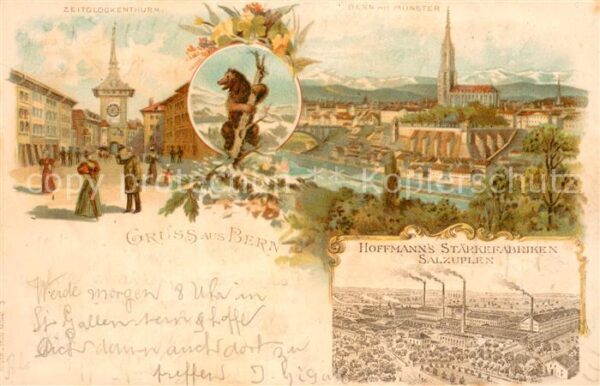 ZEITGLOCKENTHURM.
BERN MIT MÜNSTER
copy protection - Kopierschutz
GRUSS AUS BERN
HOFFMANN'S STÄRKEFABRIKEN
SALZUFLEN
Werde morgen 8 Uhr in
St Gallen sein & hoffe
Dich dann auch dort zu
treffen J.